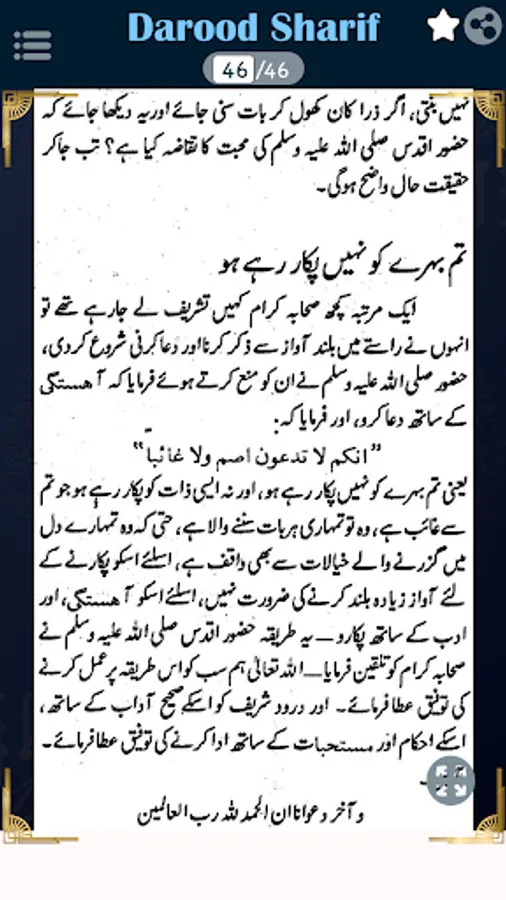 Darood Sharif
46/46
نہیں بنتی، اگر ذرا کان کھول کر بات سنی جائے اور یہ دیکھا جائے کہ
حضور اقدس صلی اللہ علیہ وسلم کی محبت کا تقاضہ کیا ہے؟ تب جاکر
حقیقت حال واضح ہوگی۔
تم بہرے کو نہیں پکار رہے ہو
ایک مرتبہ کچھ صحابہ کرام کہیں تشریف لے جارہے تھے تو
انہوں نے راستے میں بلند آواز سے ذکر کرنا اور دعا کرنی شروع کردی،
حضور صلی اللہ علیہ وسلم نے ان کو منع کرتے ہوئے فرمایا کہ آہستگی
کے ساتھ دعا کرو، اور فرمایا کہ:
”انکم لا تدعون اصم ولا غائبا“
یعنی تم بہرے کو نہیں پکار رہے ہو، اور نہ ایسی ذات کو پکار رہے ہو جو تم
سے غائب ہے، وہ تو تمہاری ہر بات سننے والا ہے، حتی کہ وہ تمہارے دل
میں گزرنے والے خیالات سے بھی واقف ہے، اسلئے اسکو پکارنے کے
لئے آواز زیادہ بلند کرنے کی ضرورت نہیں، اسلئے اسکو آہستگی، اور
ادب کے ساتھ پکارو — یہ طریقہ حضور اقدس صلی اللہ علیہ وسلم نے
صحابہ کرام کو تلقین فرمایا — اللہ تعالیٰ ہم سب کو اس طریقہ پر عمل کرنے
کی توفیق عطا فرمائے۔ اور درود شریف کو اسکے صحیح آداب کے ساتھ،
اسکے احکام اور مستحبات کے ساتھ ادا کرنے کی توفیق عطا فرمائے۔
و آخر دعوانا ان الحمد للہ رب العالمین